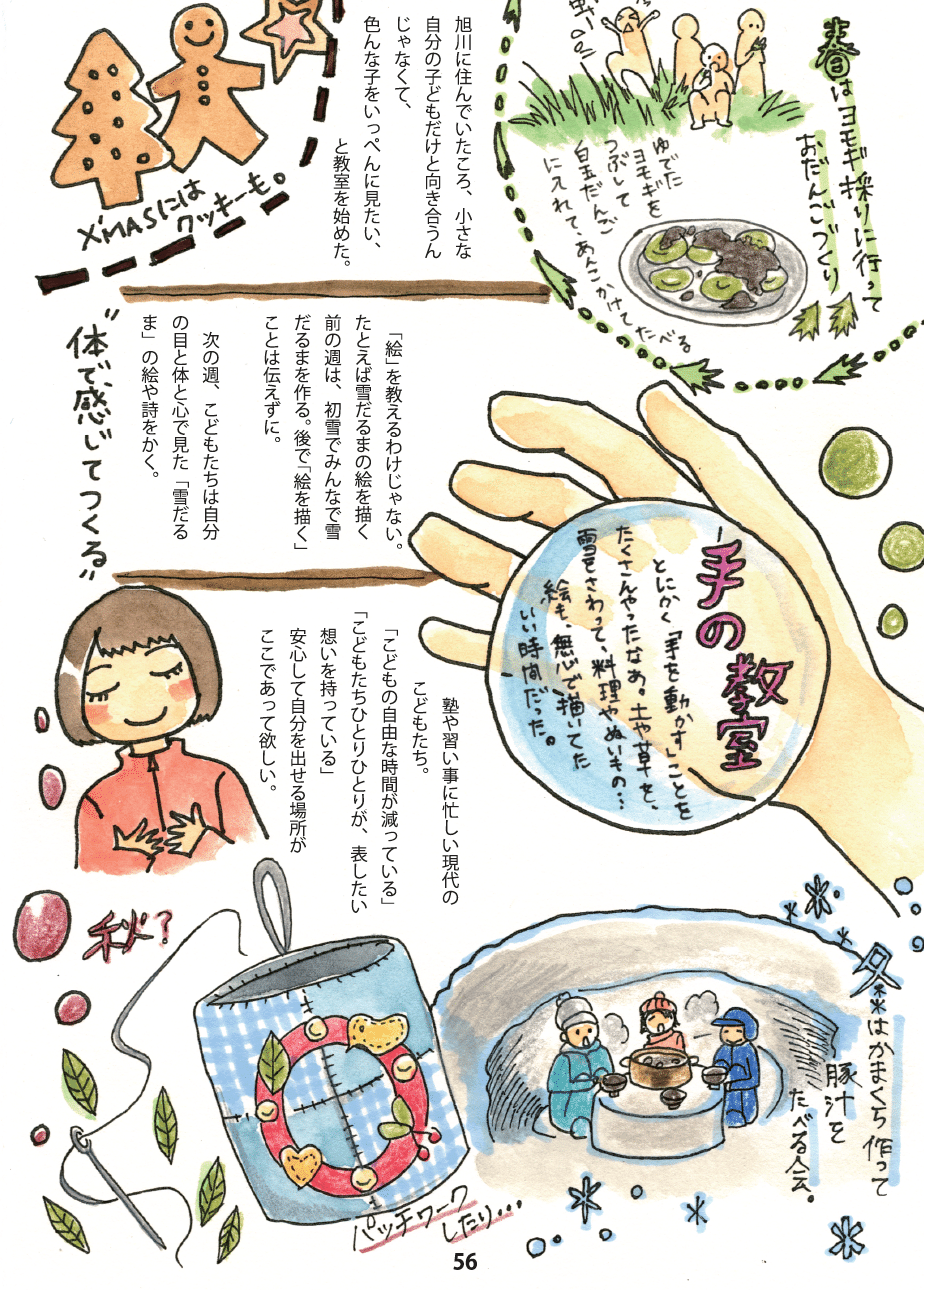 春はヨモギ採りに行って
おだんごづくり
ゆでた
ヨモギを
つぶして
白玉だんご
にいれて、あんこかけてたべる
旭川に住んでいたころ、小さな
自分の子どもだけと向き合うん
じゃなくて、
色んな子をいっぺんに見たい、
と教室を始めた。
X'MASには
クッキーも。
「絵」を教えるわけじゃない。
たとえば雪だるまの絵を描く
前の週は、初雪でみんなで雪
だるまを作る。後で「絵を描く」
ことは伝えずに。
次の週、こどもたちは自分
の目と体と心で見た「雪だる
ま」の絵や詩をかく。
"体で、感じてつくる"
手の教室
とにかく「手を動かす」ことを
たくさんやったなぁ。土や草を、
雪をさわって、料理やぬいもの…
絵も、無心で描いてた
いい時間だった。
塾や習い事に忙しい現代の
こどもたち。
「こどもの自由な時間が減っている」
「こどもたちひとりひとりが、表したい
想いを持っている」
安心して自分を出せる場所が
ここであって欲しい。
秋?
パッチワーク
したり…
冬はかまくら作って
豚汁を
たべる会。
56